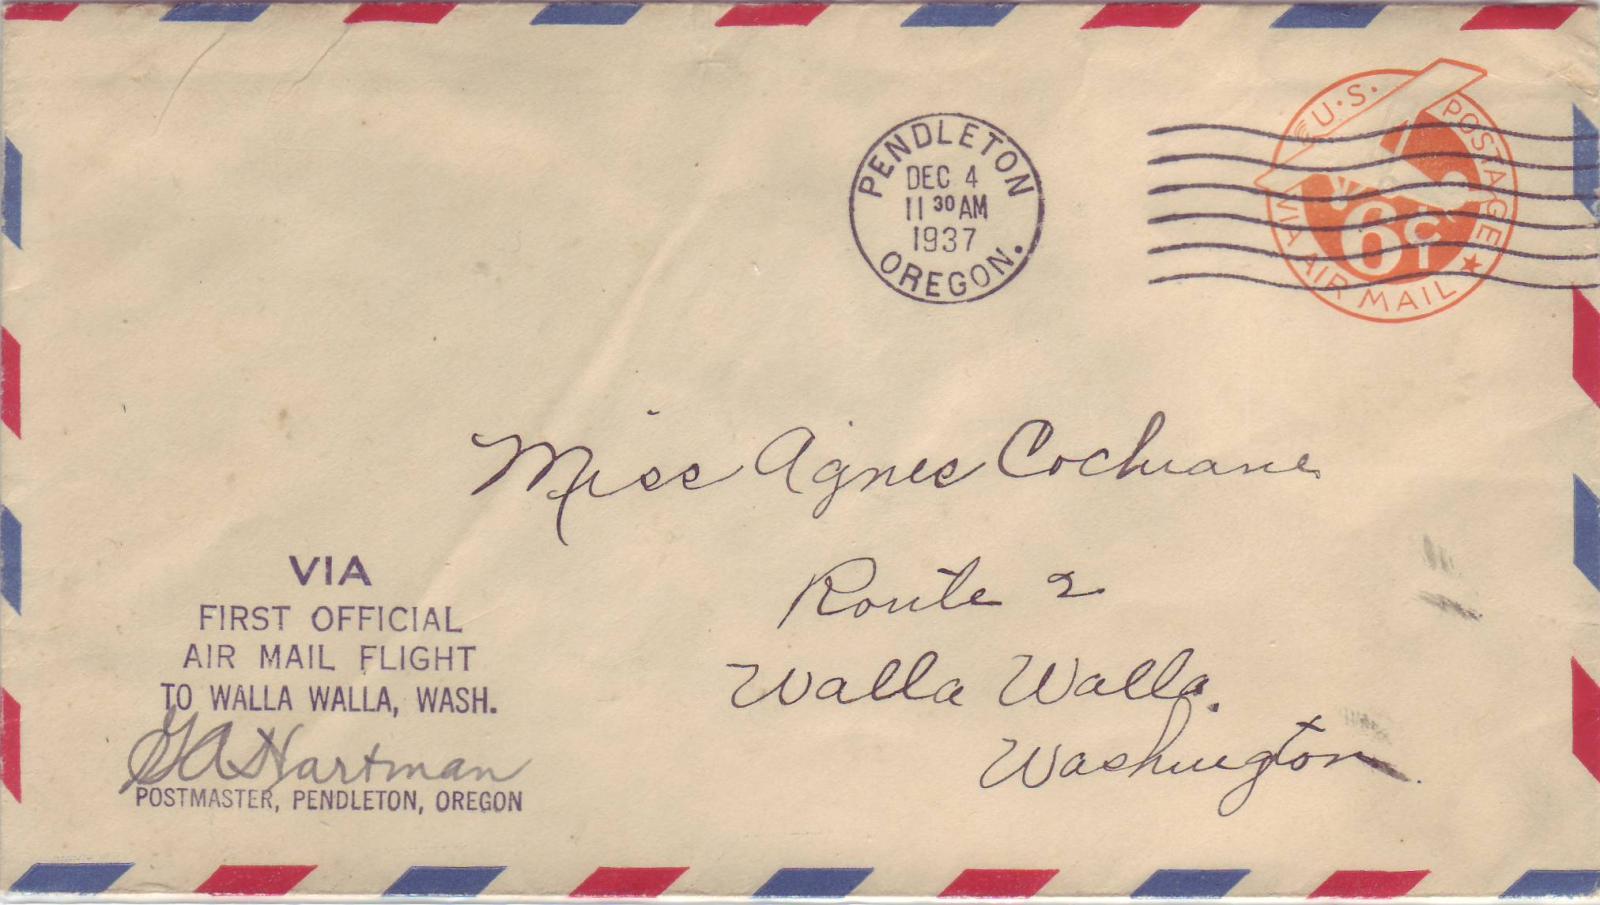 U.S. POSTAGE
VIA AIR MAIL
6¢
PENDLETON
DEC 4
11 30 AM
1937
OREGON.
Miss Agnes Cochrane
Route 2
Walla Walla.
Washington
VIA
FIRST OFFICIAL
AIR MAIL FLIGHT
TO WALLA WALLA, WASH.
GA Hartman
POSTMASTER, PENDLETON, OREGON